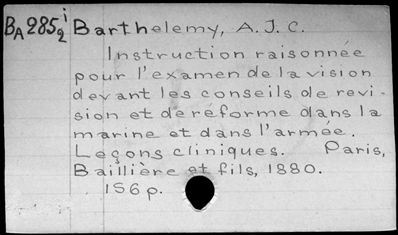 BA 285 i2 Barthelemy, A. J. C.
Instruction raisonnée
pour l'examen de la vision
devant les conseils de revi-
sion et de réforme dans la
marine et dans l'armée.
Leçons cliniques. Paris,
Baillière et fils, 1880.
156 p.